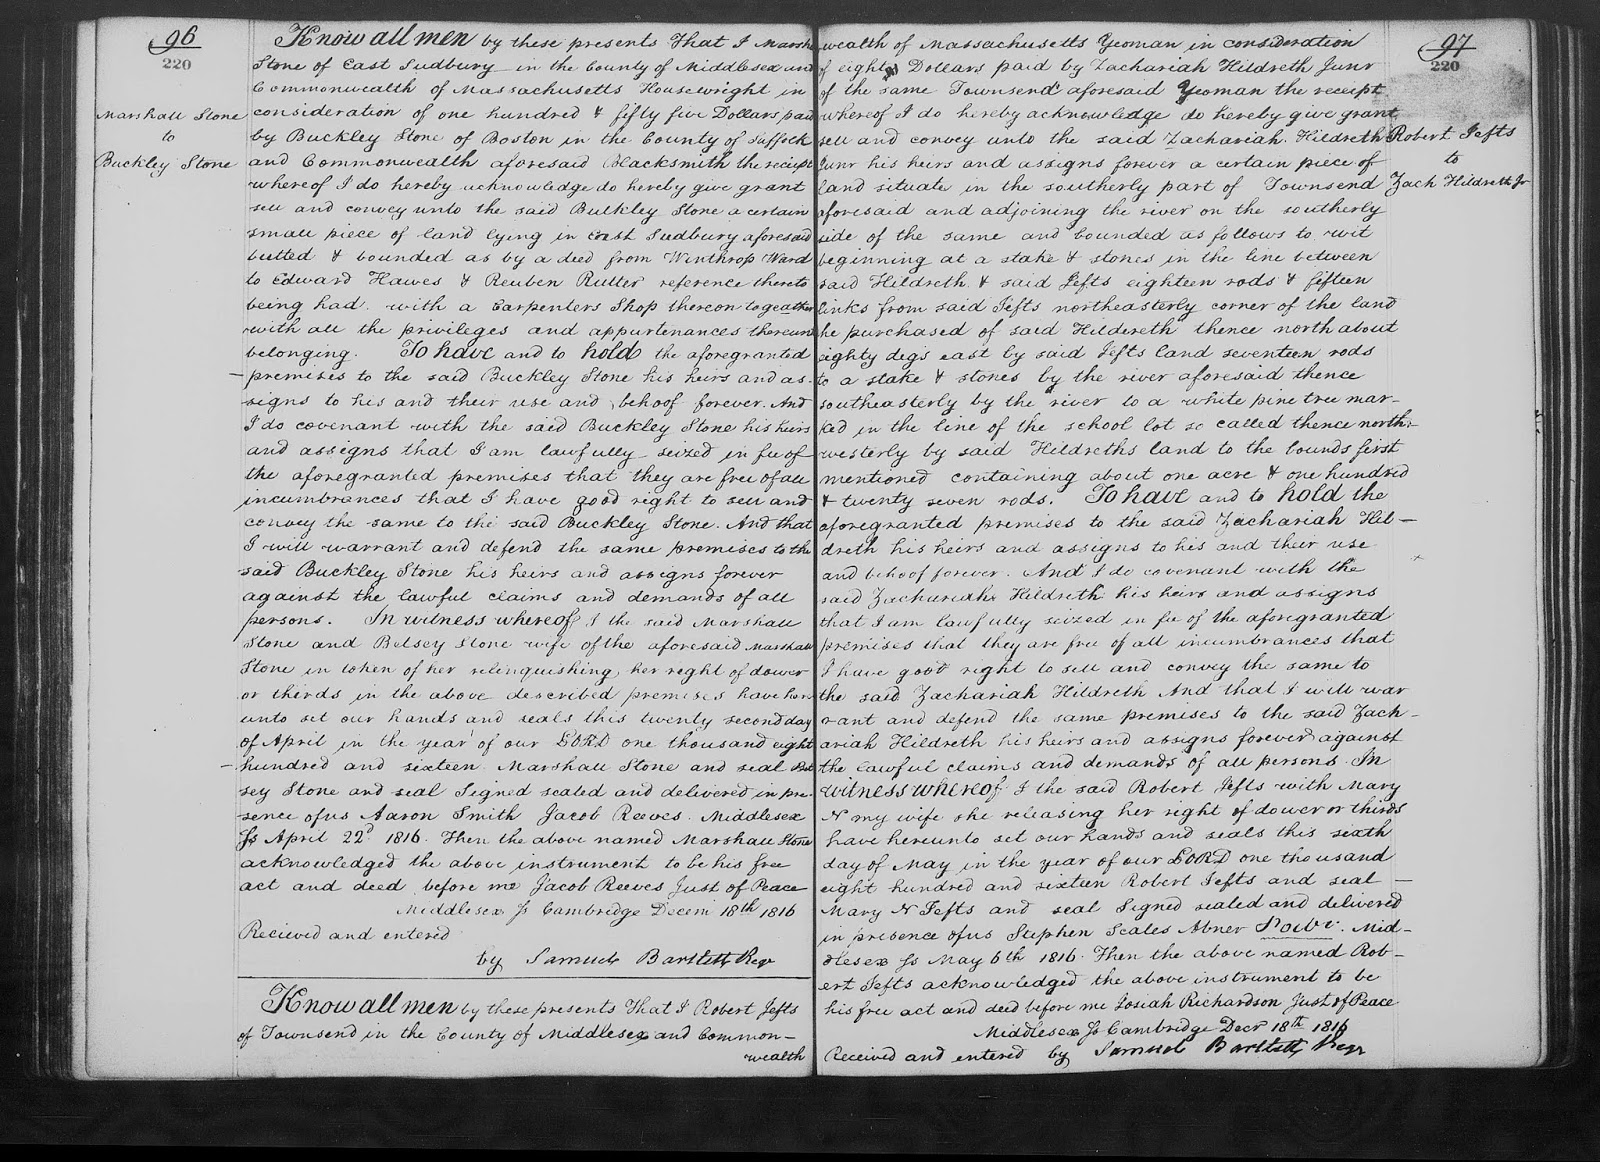 96
220
Marshall Stone
to
Buckley Stone
Know all men by these presents That I Marshall
Stone of East Sudbury in the County of Middlesex and
Commonwealth of Massachusetts Housewright in
consideration of one hundred & fifty five Dollars paid
by Buckley Stone of Boston in the County of Suffolk
and Commonwealth aforesaid Blacksmith the receipt
whereof I do hereby acknowledge do hereby give grant
sell and convey unto the said Bulkley Stone a certain
small piece of land lying in East Sudbury aforesaid
butted & bounded as by a deed from Winthrop Ward
to Edward Hawes & Reuben Rutter reference thereto
being had with a Carpenters Shop thereon togeather
with all the privileges and appurtenances thereunto
belonging. To have and to hold the aforegranted
premises to the said Buckley Stone his heirs and as-
signs to his and their use and behoof forever. And
I do covenant with the said Buckley Stone his heirs
and assigns that I am lawfully seized in fee of
the aforegranted premises that they are free of all
incumbrances that I have good right to sell and
convey the same to the said Buckley Stone. And that
I will warrant and defend the same premises to the
said Buckley Stone his heirs and assigns forever
against the lawful claims and demands of all
persons. In witness whereof I the said Marshall
Stone and Betsey Stone wife of the aforesaid Marshall
Stone in token of her relinquishing her reght of dower
or thirds in the above described premises have here
unto set our hands and seals this twenty second day
of April in the year of our LORD one thousand eight
hundred and sixteen Marshall Stone and seal Bet
sey Stone and seal Signed sealed and delivered in pre-
sence of us Aaron Smith Jacob Reeves. Middlesex
Ss April 22d 1816. Then the above named Marshall Stone
acknowledged the above instrument to be his free
act and deed before me Jacob Reeves Just of Peace
Middlesex Ss Cambridge Decem 18th 1816
Recieved and entered
by Samuel Bartlett Regr
Know all men by these presents That I Robert Jefts
of Townsend in the County of Middlesex and Common-
wealth
97
220
Robert Jefts
to
Zach Hildreth Jr
wealth of Massachusetts Yeoman in consideration
of eighty Dollars paid by Zachariah Hildreth Junr
of the same Townsend aforesaid Yeoman the receipt
whereof I do hereby acknowledge do hereby give grant
sell and convey unto the said Zachariah Hildreth
Junr his heirs and assigns forever a certain piece of
land situate in the southerly part of Townsend
aforesaid and adjoining the river on the southerly
side of the same and bounded as follows to wit
beginning at a stake & stones in the line between
said Hildreth & said Jefts eighteen rods & fifteen
links from said Jefts northeasterly corner of the land
he purchased of said Hildereth thence north about
eighty degs east by said Jefts land seventeen rods
to a stake & stones by the river aforesaid thence
southeasterly by the river to a white pine tree mar-
ked in the line of the school lot so called thence north-
westerly by said Hildreths land to the bounds first
mentioned containing about one acre & one hundred
& twenty seven rods. To have and to hold the
aforegranted premises to the said Zachariah Hil-
dreth his heirs and assigns to his and their use
and behoof forever. And I do covenant with the
said Zachariah Hildreth his heirs and assigns
that I am lawfully seized in fee of the aforegranted
premises that they are free of all incumbrances that
I have good right to sell and convey the same to
the said Zachariah Hildreth And that I will war
rant and defend the same premises to the said Zach-
ariah Hildreth his heirs and assigns forever against
the lawful claims and demands of all persons. In
witness whereof I the said Robert Jefts with Mary
N my wife she releasing her right of dower or thirds
have hereunto set our hands and seals this sixth
day of May in the year of our LORD one thousand
eight hundred and sixteen Robert Jefts and seal
Mary N Jefts and seal Signed sealed and delivered
in presence of us Stephen Scales Abner Mid-
dlesex Ss May 6th 1816. Then the above named Rob-
ert Jefts acknowledged the above instrument to be
his free act and deed before me Josiah Richardson Just of Peace
Middlesex Ss Cambridge Decr 18th 1816
Received and entered by Samuel Bartlett Regr